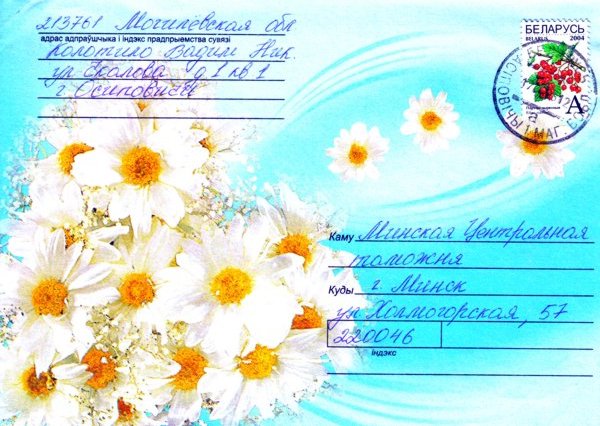 213761 Могилёвская обл
адрас адпраўшчыка і індэкс прадпрыемства сувязі
Колотило Вадим Ник.
ул Чкалова д 1 кв 1
г. Осиповичи
БЕЛАРУСЬ
BELARUS 2004
A
АСІПОВІЧЫ 1 МАГ. ВОБЛ.
Каму Минская Центральная
таможня
Куды г. Минск
ул Холмогорская, 57
220046
індэкс